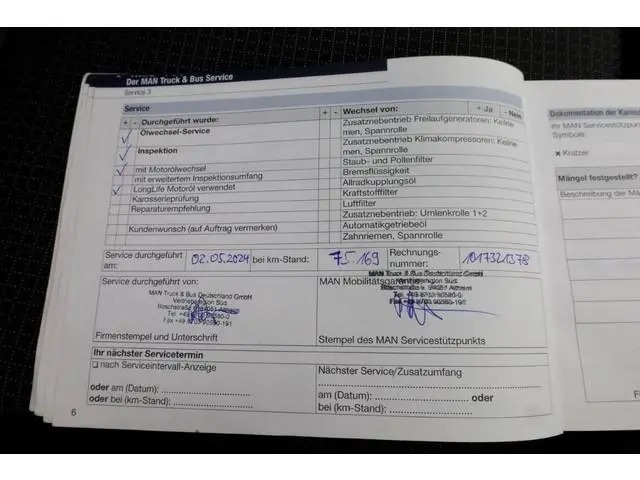 Der MAN Truck & Bus Service
Service 3
Service
+ - Durchgeführt wurde:
Ölwechsel-Service
Inspektion
mit Motorölwechsel
mit erweitertem Inspektionsumfang
LongLife Motoröl verwendet
Karosserieprüfung
Reparaturempfehlung
Kundenwunsch (auf Auftrag vermerken)
+ - Wechsel von: + Ja - Nein
Zusatznebentrieb Freilaufgeneratoren: Keilrie-
men, Spannrolle
Zusatznebentrieb Klimakompressoren: Keilrie-
men, Spannrolle
Staub- und Pollenfilter
Bremsflüssigkeit
Allradkupplungsöl
Kraftstofffilter
Luftfilter
Zusatznebentrieb: Umlenkrolle 1+2
Automatikgetriebeöl
Zahnriemen, Spannrolle
Service durchgeführt am: 02.05.2024 bei km-Stand: 75.169 Rechnungs-
nummer: 1017321378
Service durchgeführt von:
MAN Truck & Bus Deutschland GmbH
Vertriebsregion Süd
Fax +49 8703 90580-191
Firmenstempel und Unterschrift
MAN Mobilitätsgarantie
MAN Truck & Bus Deutschland GmbH
Vertriebsregion Süd
Stempel des MAN Servicestützpunkts
Ihr nächster Servicetermin
❑ nach Serviceintervall-Anzeige
oder am (Datum):
oder bei (km-Stand):
Nächster Service/Zusatzumfang
am (Datum): oder
bei (km-Stand):
6
Dokumentation der Karos
Ihr MAN Servicestützpun
Symbole:
× Kratzer
Mängel festgestellt?
Beschreibung der Mä